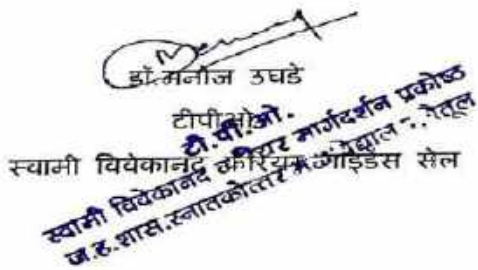 डॉ.मनोज उघडे
टीपीओ
स्वामी विवेकानंद कैरियर गाइडेंस सेल
टी.पी.ओ.
स्वामी विवेकानंद कैरियर मार्गदर्शन प्रकोष्ठ
ज.ह.शास.स्नातकोत्तर